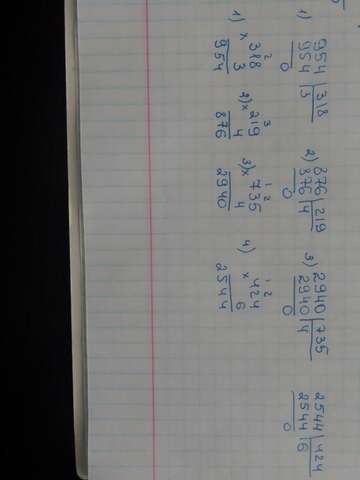 1) 954 | 318 2) 876 | 219 3) 2940 | 735 2544 | 424
954 | 3 876 | 4 2940 | 4 2544 | 6
0 0 0 0
2 3 1 2 1 2
1) × 318 2) × 219 3) × 735 4) × 424
3 4 4 6
954 876 2940 2544